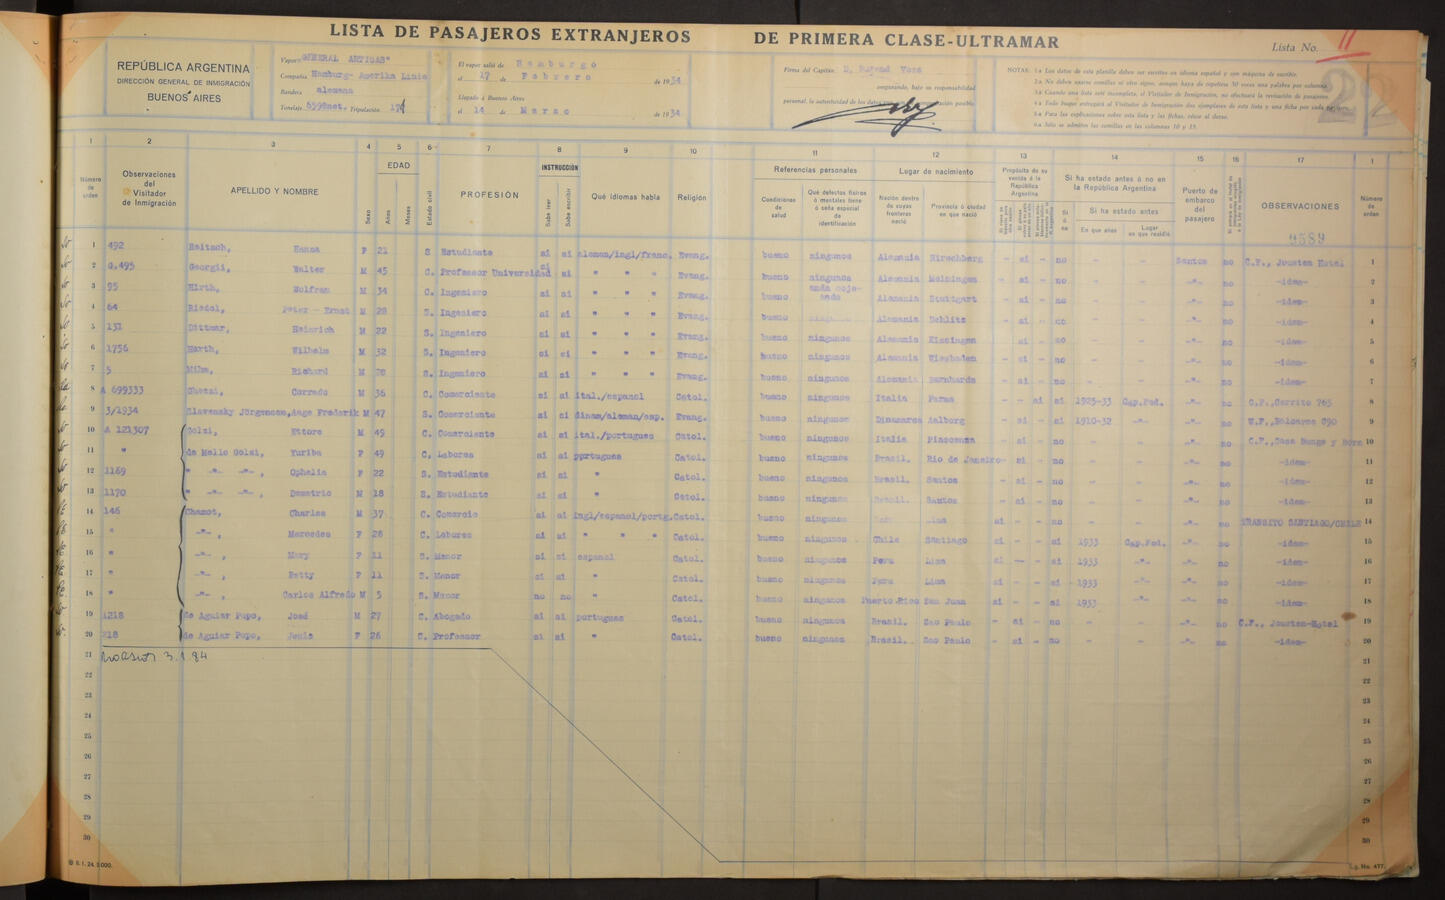 LISTA DE PASAJEROS EXTRANJEROS DE PRIMERA CLASE-ULTRAMAR
Lista No. 11
REPÚBLICA ARGENTINA
DIRECCIÓN GENERAL DE INMIGRACIÓN
BUENOS AIRES
Vapor "GENERAL ARTIGAS"
Compañía Hamburg- Amerika Linie
Bandera alemana
Tonelaje 6598net. Tripulación
El vapor salió de Hamburgo
el 17 de Febrero de 1934
Llegado á Buenos Aires
el 14 de Marzo de 1934
Firma del Capitán
asegurando, bajo su responsabilidad
personal, la autenticidad de los datos
NOTAS: 1a Los datos de esta planilla deben ser escritos en idioma español y con máquina de escribir.
22
1 2 3 4 5 6 7 8 9 10 11 12 13 14 15 16 17 1
Número de orden
Observaciones del Visitador de Inmigración
APELLIDO Y NOMBRE
Sexo
EDAD
Años
Meses
Estado civil
PROFESIÓN
INSTRUCCIÓN
Sabe leer
Sabe escribir
Qué idiomas habla
Religión
Referencias personales
Condiciones de salud
Qué defectos físicos ó mentales tiene ó seña especial de identificación
Lugar de nacimiento
Nación dentro de cuyas fronteras nació
Provincia ó ciudad en que nació
Propósito de su venida á la República Argentina
Si ha estado antes ó no en la República Argentina
Si ó no
Si ha estado antes
En que años
Lugar en que residió
Puerto de embarco del pasajero
OBSERVACIONES
Número de orden
9589
1 492 Reitsch, Hanna F 21 S Estudiante si si aleman/ingl/franc. Evang. bueno ningunos Alemania Hirschberg - si - no - - Santos no C.F., Jousten Hotel 1
2 G.495 Georgii, Walter M 45 C. Professor Universidad si si " " " Evang. bueno ningunos Alemania Meiningen - si - no - - -"- no -idem- 2
3 95 Hirth, Wolfram M 34 C. Ingeniero si si " " " Evang. bueno Alemania Stuttgart - si - no - - -"- no -idem- 3
4 64 Riedel, Peter - Ernst M 28 S. Ingeniero si si " " " Evang. bueno Alemania Dehlitz - si - no - - -"- no -idem- 4
5 131 Dittmar, Heinrich M 22 S. Ingeniero si si " " " Evang. bueno ningunos Alemania Kissingen - si - no - - -"- no -idem- 5
6 1756 Harth, Wilhelm M 32 S. Ingeniero si si " " " Evang. bueno ningunos Alemania Wiesbaden - si - no - - -"- no -idem- 6
7 5 Mihm, Richard M 28 S. Ingeniero si si " " " Evang. bueno ningunos Alemania Bernhards - si - no - - -"- no -idem- 7
8 A 699333 Corrado M 36 C. Comerciante si si ital./espanol Catol. bueno ningunos Italia Parma - - si si 1925-33 Cap.Fed. -"- no C.F., Cerrito 765 8
9 3/1934 Slavensky Jörgensen, Aage Frederik M 47 S. Comerciante si si dinam/aleman/esp. Evang. bueno ningunos Dinamarca Aalborg - si - si 1910-32 -"- -"- no 9
10 A 121307 Golzi, Ettore M 49 C. Comerciante si si ital./portugues Catol. bueno ningunos Italia Piacenza - si - no - - -"- no C.F., Casa Bunge y Born 10
11 " de Mello Golzi, Yuriba F 49 C. Labores si si portugues Catol. bueno ningunos Brasil. Rio de Janeiro - si - no - - -"- no -idem- 11
12 1169 " -"- -"- , Ophelia F 22 S. Estudiante si si " Catol. bueno ningunos Brasil. Santos - si - no - - -"- no -idem- 12
13 1170 " -"- -"- , Demetrio M 18 S. Estudiante si si " Catol. bueno ningunos Brasil. Santos - si - no - - -"- no -idem- 13
14 146 Chamot, Charles M 37 C. Comercio si si ingl/espanol/portg. Catol. bueno ningunos Lima si - - no - - -"- no TRANSITO SANTIAGO/CHILE 14
15 " -"- , Mercedes F 28 C. Labores si si " " " Catol. bueno ningunos Chile Santiago si - - si 1933 Cap.Fed. -"- no -idem- 15
16 " -"- , Mary F 11 S. Menor si si espanol Catol. bueno ningunos Peru Lima si - - si 1933 -"- -"- no -idem- 16
17 " -"- , Betty F 11 S. Menor si si " Catol. bueno ningunos Peru Lima si - - si 1933 -"- -"- no -idem- 17
18 " -"- , Carlos Alfredo M 5 S. Menor no no " Catol. bueno ningunos Puerto Rico San Juan si - - si 1933 -"- -"- no -idem- 18
19 1218 de Aguiar Pupo, José M 27 C. Abogado si si portugues Catol. bueno ningunos Brasil. Sao Paulo - si - no - - -"- no C.F., Jousten-Hotel 19
20 218 de Aguiar Pupo, F 26 C. Professor si si " Catol. bueno ningunos Brasil. Sao Paulo - si - no - - -"- no -idem- 20
21 21
22 22
23 23
24 24
25 25
26 26
27 27
28 28
29 29
30 30